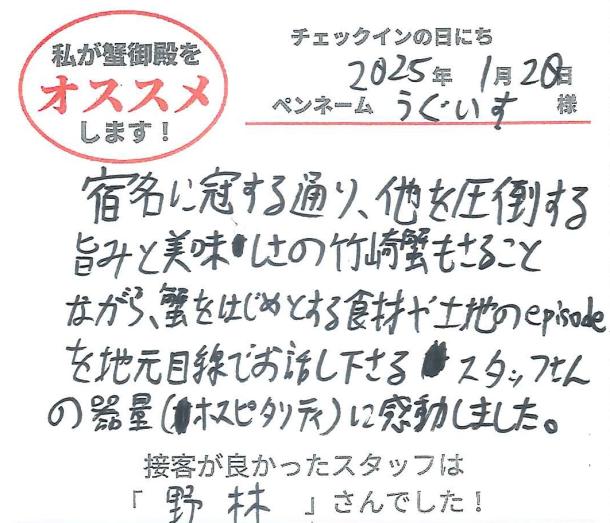 私が蟹御殿を
オススメ
します！
チェックインの日にち
2025年 1月20日
ペンネーム うぐいす 様
宿名に冠する通り、他を圧倒する
旨みと美味しさの竹崎蟹もさること
ながら、蟹をはじめとする食材や土地のepisode
を地元目線でお話し下さる スタッフさん
の器量(ホスピタリティ)に感動しました。
接客が良かったスタッフは
「 野林 」さんでした！